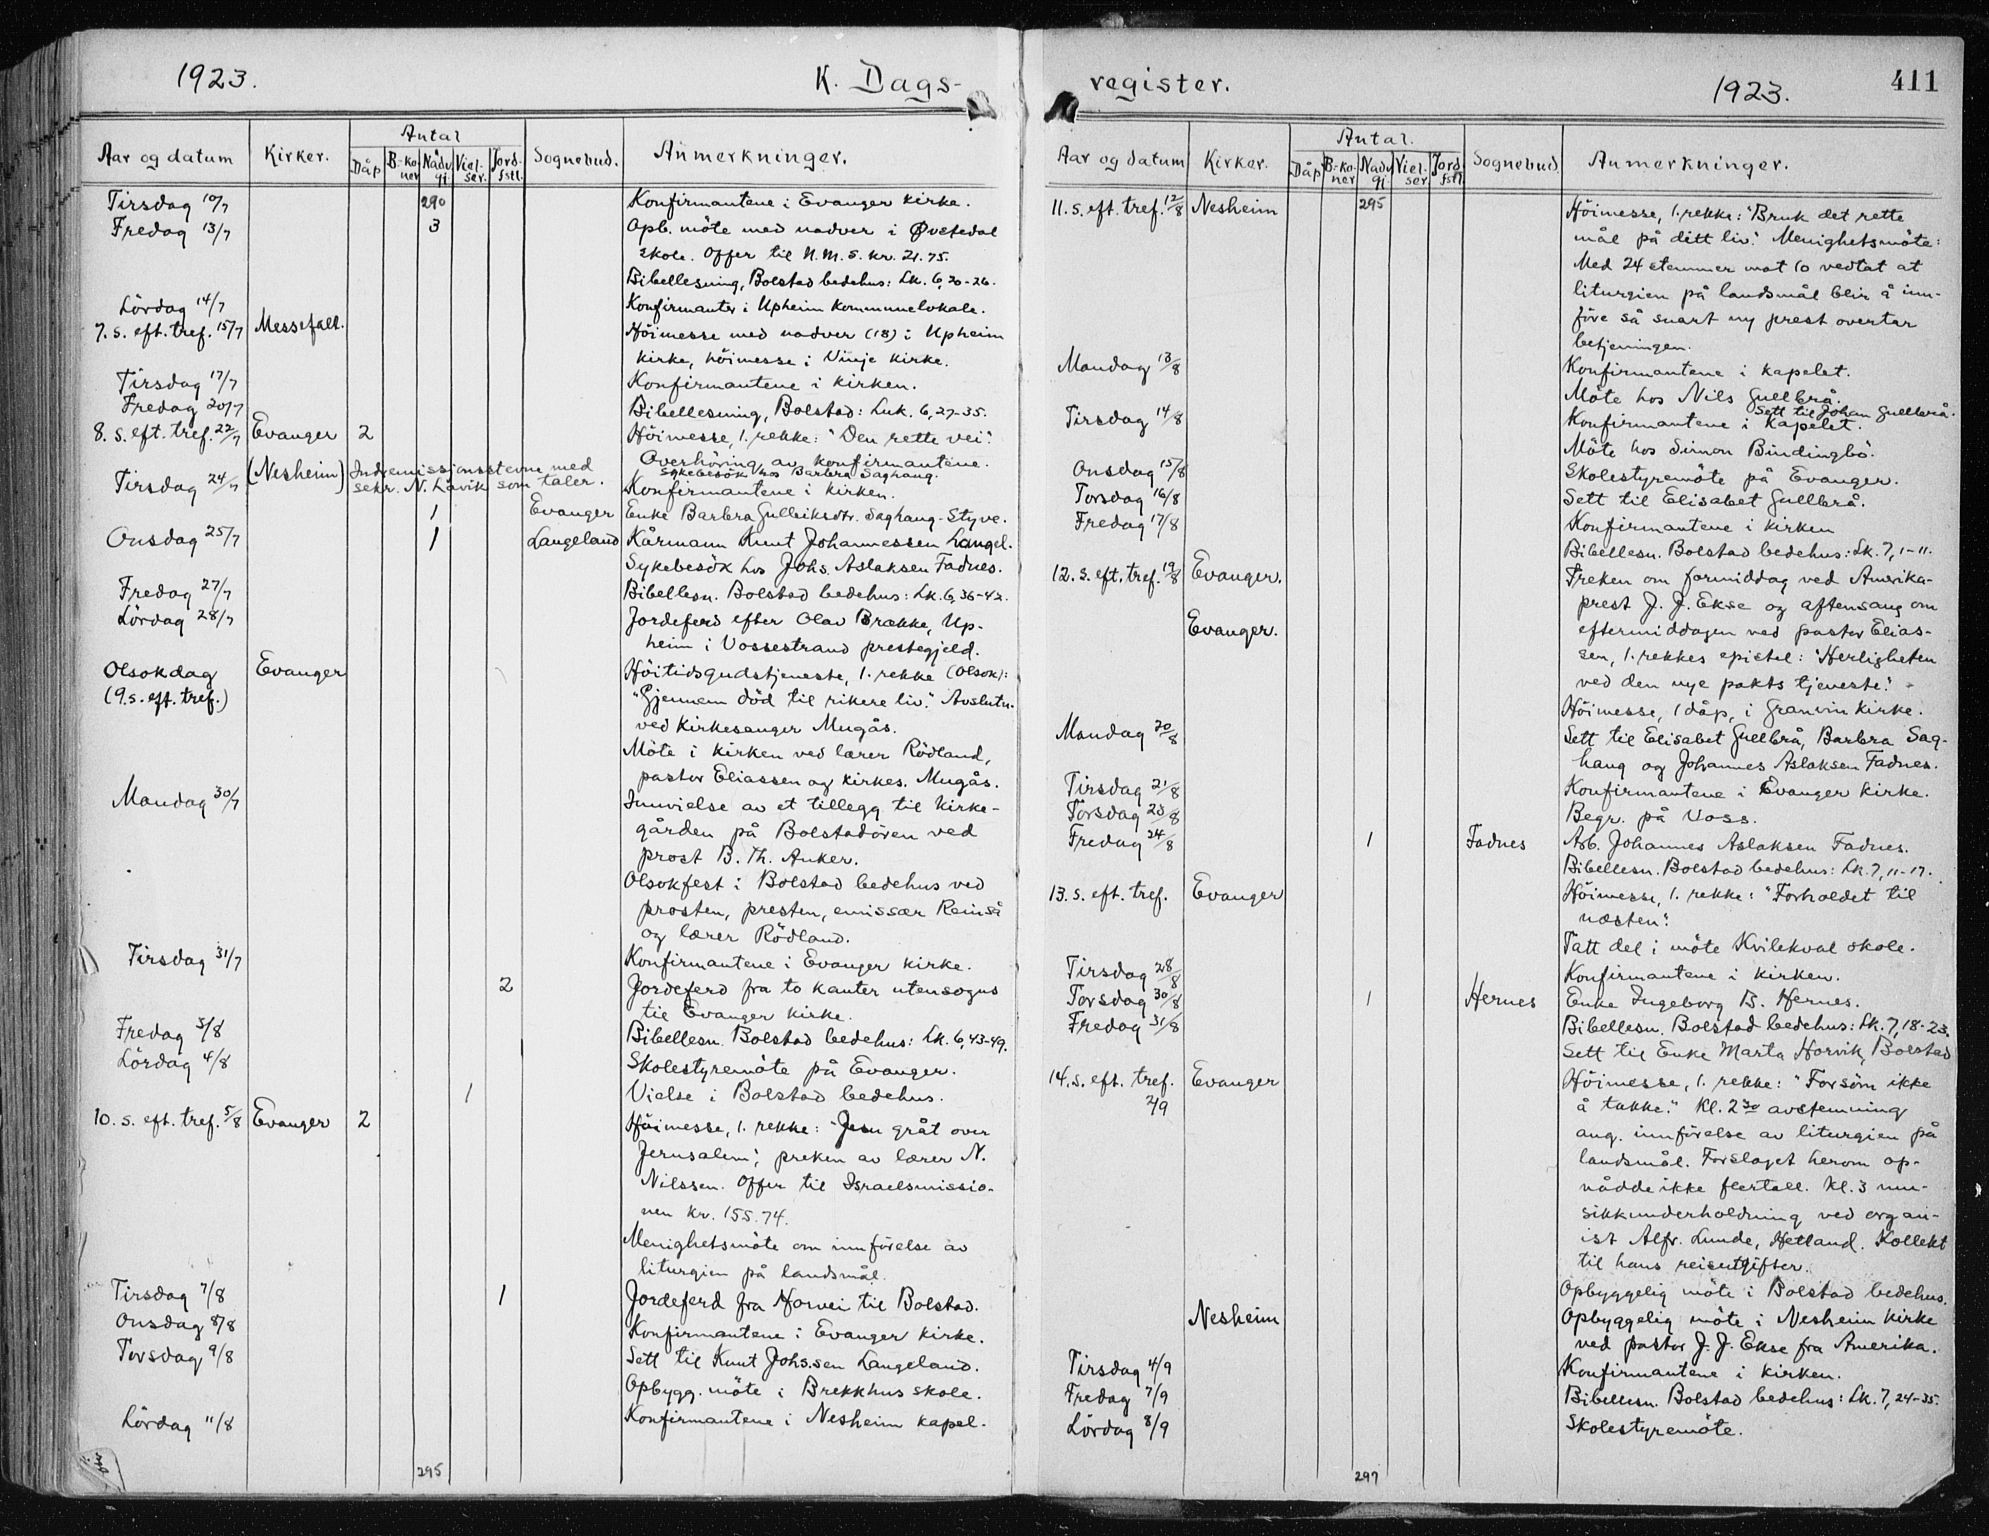 1923. K. Dags-
Antal
Aar og datum Kirker. Dåp B.-ko-ner Nadv. gj. Viel-ser. Jord-fstl. Sognebud. Anmerkninger.
Tirsdag 10/7 290 Konfirmantene i Evanger kirke.
Fredag 13/7 3 Opb. möte med nadver i Øvstedal
skole. Offer til N.M.S. kr. 21.75.
Bibellesning, Bolstad bedehus: Lk. 6,20-26.
Lördag 14/7 Konfirmanter i Upheim kommunelokale.
7. s. eft. tref. 15/7 Messefall. Höimesse med nadver (18) i Upheim
kirke, höimesse i Vinje kirke.
Tirsdag 17/7 Konfirmantene i kirken.
Fredag 20/7 Bibellesning, Bolstad: Luk. 6,27-35.
8. s. eft. tref. 22/7 Evanger 2 Höimesse, 1. rekke: "Den rette vei."
Overhöring av konfirmantene.
(Nesheim) Indremissionsstevne med
sekr. N. Lavik som taler. Sykebesök hos Barbra Saghaug.
Tirsdag 24/7 Konfirmantene i kirken.
1 Evanger Enke Barbra Gulleiksdtr. Saghaug-Styve.
Onsdag 25/7 1 Langeland Kårmann Knut Johannessen Langel.
Sykebesök hos Johs. Aslaksen Fadnes.
Fredag 27/7 Bibellesn. Bolstad bedehus: Lk. 6,36-42.
Lördag 28/7 Jordeferd efter Olav Brække, Up-
heim i Vossestrand prestegjeld.
Olsokdag Evanger Höitidsgudstjeneste, 1. rekke (Olsok):
(9. s. eft. tref.) "Gjennem död til rikere liv." Avslutn.
ved kirkesanger Mugås.
Möte i kirken ved lærer Rödland,
pastor Eliassen og kirkes. Mugås.
Mandag 30/7 Innvielse av et tillegg til kirke-
gården på Bolstadören ved
prost B. Th. Anker.
Olsokfest i Bolstad bedehus ved
prosten, presten, emissær Reinså
og lærer Rödland.
Tirsdag 31/7 Konfirmantene i Evanger kirke.
2 Jordeferd fra to kanter utensogns
til Evanger kirke.
Fredag 3/8 Bibellesn. Bolstad bedehus: Lk. 6,43-49.
Lördag 4/8 Skolestyremöte på Evanger.
1 Vielse i Bolstad bedehus.
10. s. eft. tref. 5/8 Evanger 2 Höimesse, 1. rekke: "Jesu gråt over
Jerusalem", preken av lærer N.
Nilssen. Offer til Israelsmissio-
nen kr. 155.74.
Menighetsmöte om innförelse av
liturgien på landsmål.
Tirsdag 7/8 1 Jordeferd fra Horvei til Bolstad.
Onsdag 8/8 Konfirmantene i Evanger kirke.
Torsdag 9/8 Sett til Knut Johs.sen Langeland.
Opbygg. möte i Brekkhus skole.
Lördag 11/8 Konfirmantene i Nesheim kapel.
295
register. 1923. 411
Antal.
Aar og datum Kirker. Dåp B.-ko-ner Nadv. gj. Viel-ser. Jord-fstl. Sognebud. Anmerkninger.
11. s. eft. tref. 12/8 Nesheim 295 Höimesse, 1. rekke: "Bruk det rette
mål på ditt liv." Menighetsmöte:
Med 24 stemmer mot 10 vedtat at
liturgien på landsmål blir å inn-
före så snart ny prest overtar
betjeningen.
Mandag 13/8 Konfirmantene i kapelet.
Möte hos Nils Gullbrå.
Sett til Johan Gullbrå.
Tirsdag 14/8 Konfirmantene i kapelet.
Möte hos Simon Bindingbö.
Onsdag 15/8 Skolestyremöte på Evanger.
Torsdag 16/8 Sett til Elisabet Gullbrå.
Fredag 17/8 Konfirmantene i kirken
Bibellesn. Bolstad bedehus: Lk. 7,1-11.
12. s. eft. tref. 19/8 Evanger. Preken om formiddag ved Amerika-
prest J. J. Ekse og aftensang om
Evanger. eftermiddagen ved pastor Elias-
sen, 1. rekkes epistel: "Herligheten
ved den nye pakts tjeneste."
Höimesse, 1 dåp, i Granvin kirke.
Mandag 20/8 Sett til Elisabet Gullbrå, Barbra Sag-
haug og Johannes Aslaksen Fadnes.
Tirsdag 21/8 Konfirmantene i Evanger kirke.
Torsdag 23/8 Begr. på Voss.
Fredag 24/8 1 Fadnes Arb. Johannes Aslaksen Fadnes.
Bibellesn. Bolstad bedehus: Lk. 7,11-17.
13. s. eft. tref. Evanger Höimesse, 1. rekke: "Forholdet til
næsten."
Tatt del i möte Kvilekval skole.
Tirsdag 28/8 Konfirmantene i kirken.
Torsdag 30/8 1 Hernes Enke Ingeborg B. Hernes.
Fredag 31/8 Bibellesn. Bolstad bedehus: Lk. 7,18-23.
Sett til Enke Marta Horvik, Bolstad
14. s. eft. tref. Evanger Höimesse, 1. rekke: "Forsöm ikke
2/9 å takke." Kl. 2 30 avstemning
ang. innförelse av liturgien på
landsmål. Forslaget herom op-
nådde ikke flertall. Kl. 3 mu-
sikkunderholdning ved organ-
ist Alfr. Lunde, Hetland. Kollekt
til hans reiseutgifter.
Opbyggelig möte i Bolstad bedehus.
Nesheim Opbyggelig möte i Nesheim kirke
ved pastor J. J. Ekse fra Amerika.
Tirsdag 4/9 Konfirmantene i kirken.
Fredag 7/9 Bibellesn. Bolstad bedehus: Lk. 7,24-35.
Lördag 8/9 Skolestyremöte.
297